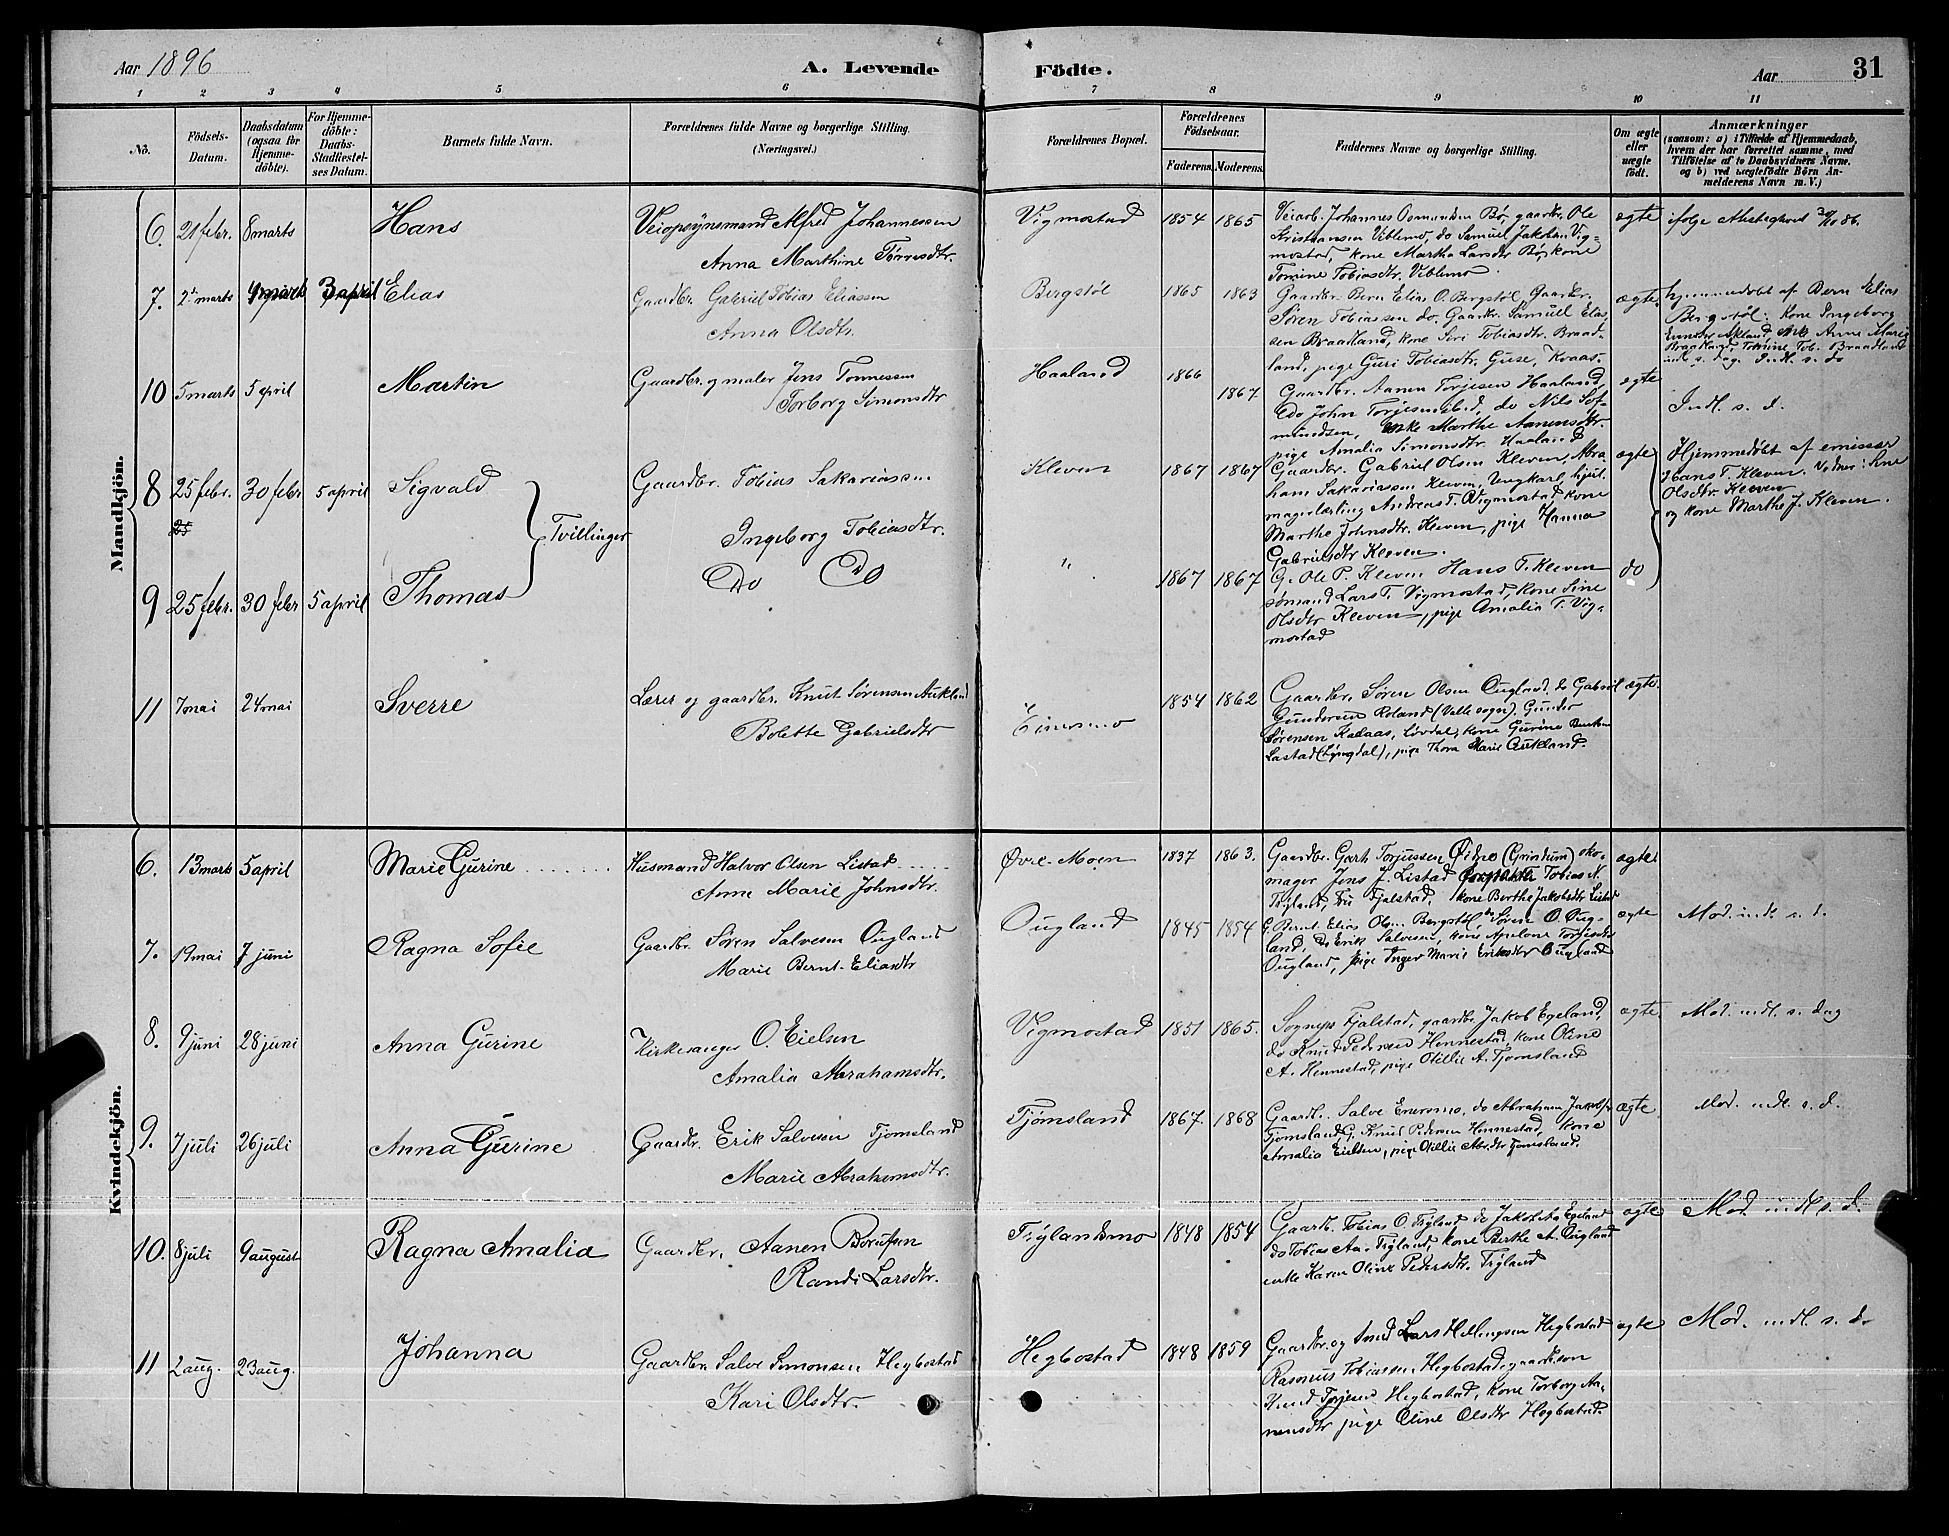 Aar 1896
A. Levende
Födte.
Aar
31
1 2 3 4 5 6 7 8 9 10 11
No.
Födsels-
Datum.
Daabsdatum
(ogsaa for
Hjemme-
döbte).
For Hjemme-
döbte:
Daabs-
Stadfæstel-
ses Datum.
Barnets fulde Navn.
Forældrenes fulde Navne og borgerlige Stilling.
(Næringsvei.)
Forældrenes Bopæl.
Forældrenes
Födselsaar.
Faderens. Moderens.
Faddernes Navne og borgerlige Stilling.
Om ægte
eller
uægte
født.
Anmærkninger
(saasom: a) i Tilfælde af Hjemmedaab,
hvem der har forrettet samme, med
Tilføielse af to Daabsvidners Navne.
og b) ved uægtefødte Börn An-
melderens Navn m. V.)
Mandkjön.
6. 21 febr. 8 marts Hans
Veiopsynsmand Alfred Johannessen
Anna Marthine Tørresdtr.
Vigmostad 1854 1865
Veiarb. Johannes Osmundsen Bø, gaardbr. Ole
Kristiansen Viblemo, do Samuel Jakobsn Vig-
mostad, kone Martha Larsdtr Bø, kone
Tomine Tobiasdtr. Viblemo.
ægte
7. 2 marts 4 marts 3 april Elias
Gaardbr. Gabriel Tobias Eliassen
Anna Olsdtr.
Bergstøl 1865 1863
Gaardbr. Bern Elias O. Bergstøl, Gaardbr.
Søren Tobiassen do. Gaardbr. Samuel Elas-
sen Braadland, kone Seri Tobiasdtr. Braad-
land, pige Guri Tobiasdtr.
ægte.
hjemmedøbt af Bern Elias
Bergstøl. Kone Ingeborg
10 5 marts 5 april Martin
Gaardbr. og maler Jens Tønnessen
Torborg Simonsdtr
Haaland 1866
1867
Gaardbr. Aanen Torjesen Haaland,
do John Torjesen ibid, do Nils Sof-
mundsen, enke Marthe Aanensdtr.
pige Amalia Simonsdtr. Haaland
ægte
Indl. s. d.
8 25 febr. 30 febr 5 april Sigvald
Gaardbr. Tobias Sakariassn.
Ingeborg Tobiasdtr.
Tvillinger
Kleven 1867 1867
Gaardbr. Gabriel Olsen Kleven, Abra-
ham Sakariassen Kleven, Ungkarl, hjul-
magerlærling Andreas T. Vigmostad, kone
Marthe Johnsdtr. Kleven, pige Hanna
Gabrielsdtr Kleven.
ægte
Hjemmedøbt af emissær
Hans T. Kleven. Vidner: Sine
Olsdtr. Kleven
og kone Marthe J. Kleven.
9 25 febr. 30 febr 5 april Thomas
Do Do
" 1867 1867
G. Ole P. Kleven Hans T. Kleven
sømand Lars T. Vigmostad, kone Sine
Olsdtr Kleven, pige Amalia T. Vig-
mostad
do
11 7 mai 24 mai Sverre
Lærer og gaardbr. Knut Sørensen Aukland
Bolette Gabrielsdtr
Einermo 1854 1862
Gaardbr. Søren Olsen Ougland, do Gabriel
Gundersen Roland (Valle sogn), Gunder
Sørensen Kalaas, Løvdal, kone Gurine
Lastad (Lyngdal), pige Thora Marie Aukland.
ægte.
Kvindekjön.
6. 13 marts 5 april Marie Gurine
Husmand Halvor Olsen Listad
Anne Marie Johnsdtr.
Øvre-Moen 1837 1863.
Gaardbr. Garth Torjussen Øidne (Grindum) sko-
mager Jens J. Listad Tobias N.
Trygland, Fru Fjalstad, kone Berthe Jakobsdtr Listad
ægte
7. 19 mai 7 juni Ragna Sofie
Gaardbr. Søren Salvesen Ougland
Marie Bernt-Eliasdtr
Ougland 1845 1854
G. Bernt Elias Olsn. Bergstøl do Søren O. Oug-
land, do Erik Salvesen, kone Apelone Torjesdtr
Ougland, pige Inger Marie Eriksdtr Ougland
ægte
Mod. indl. s. d.
8. 9 juni 28 juni Anna Gurine
Kirkesanger O. Eielsen
Amalia Abrahamsdtr.
Vigmostad 1851 1865.
Sognep. Fjalstad, gaardbr. Jakob Egeland,
do Knud Pedersen Hennestad, kone Oline
A. Hennestad, pige Otillie A. Tjømsland
ægte
Mod. indl. s. dag
9. 7 juli 26 juli Anna Gurine
Gaardbr. Erik Salvesen Tjømsland
Marie Abrahamsdtr.
Tjømsland 1867. 1868
Gaardbr. Salve Enersmo, do Abraham Jakobsn
Tjømsland, G. Knud Pedersen Hennestad, kone
Amalia Eielsen, pige Otillie Abr.dtr Tjømsland.
ægte
Mod. indl. s. d.
10. 8 juli 9 august Ragna Amalia
Gaardbr. Aanen Borufsen
Randi Larsdtr.
Trylandsmo 1848 1854
Gaardb. Tobias O. Tryland, do Jakob Aa Egeland
do Tobias Aa. Trÿland, kone Berthe A. Ougland
enke Karen Oline Pedersdtr. Trÿland
ægte
Mod. indl. s. d.
11 2 aug. 23 aug. Johanna
Gaardbr. Salve Simonsen Hegbostad
Kari Olsdtr.
Hegbostad 1848 1859
Gaardbr. og Smed Lars Hellingsen Hegbostad
Rasmus Tobiassen Hegbostad, gaardbr. søn
Knud Torjesen Hegbostad, kone Torborg Aa-
nensdtr pige Oline Olsdtr Hegbostad.
ægte
Mod. indl. s. do